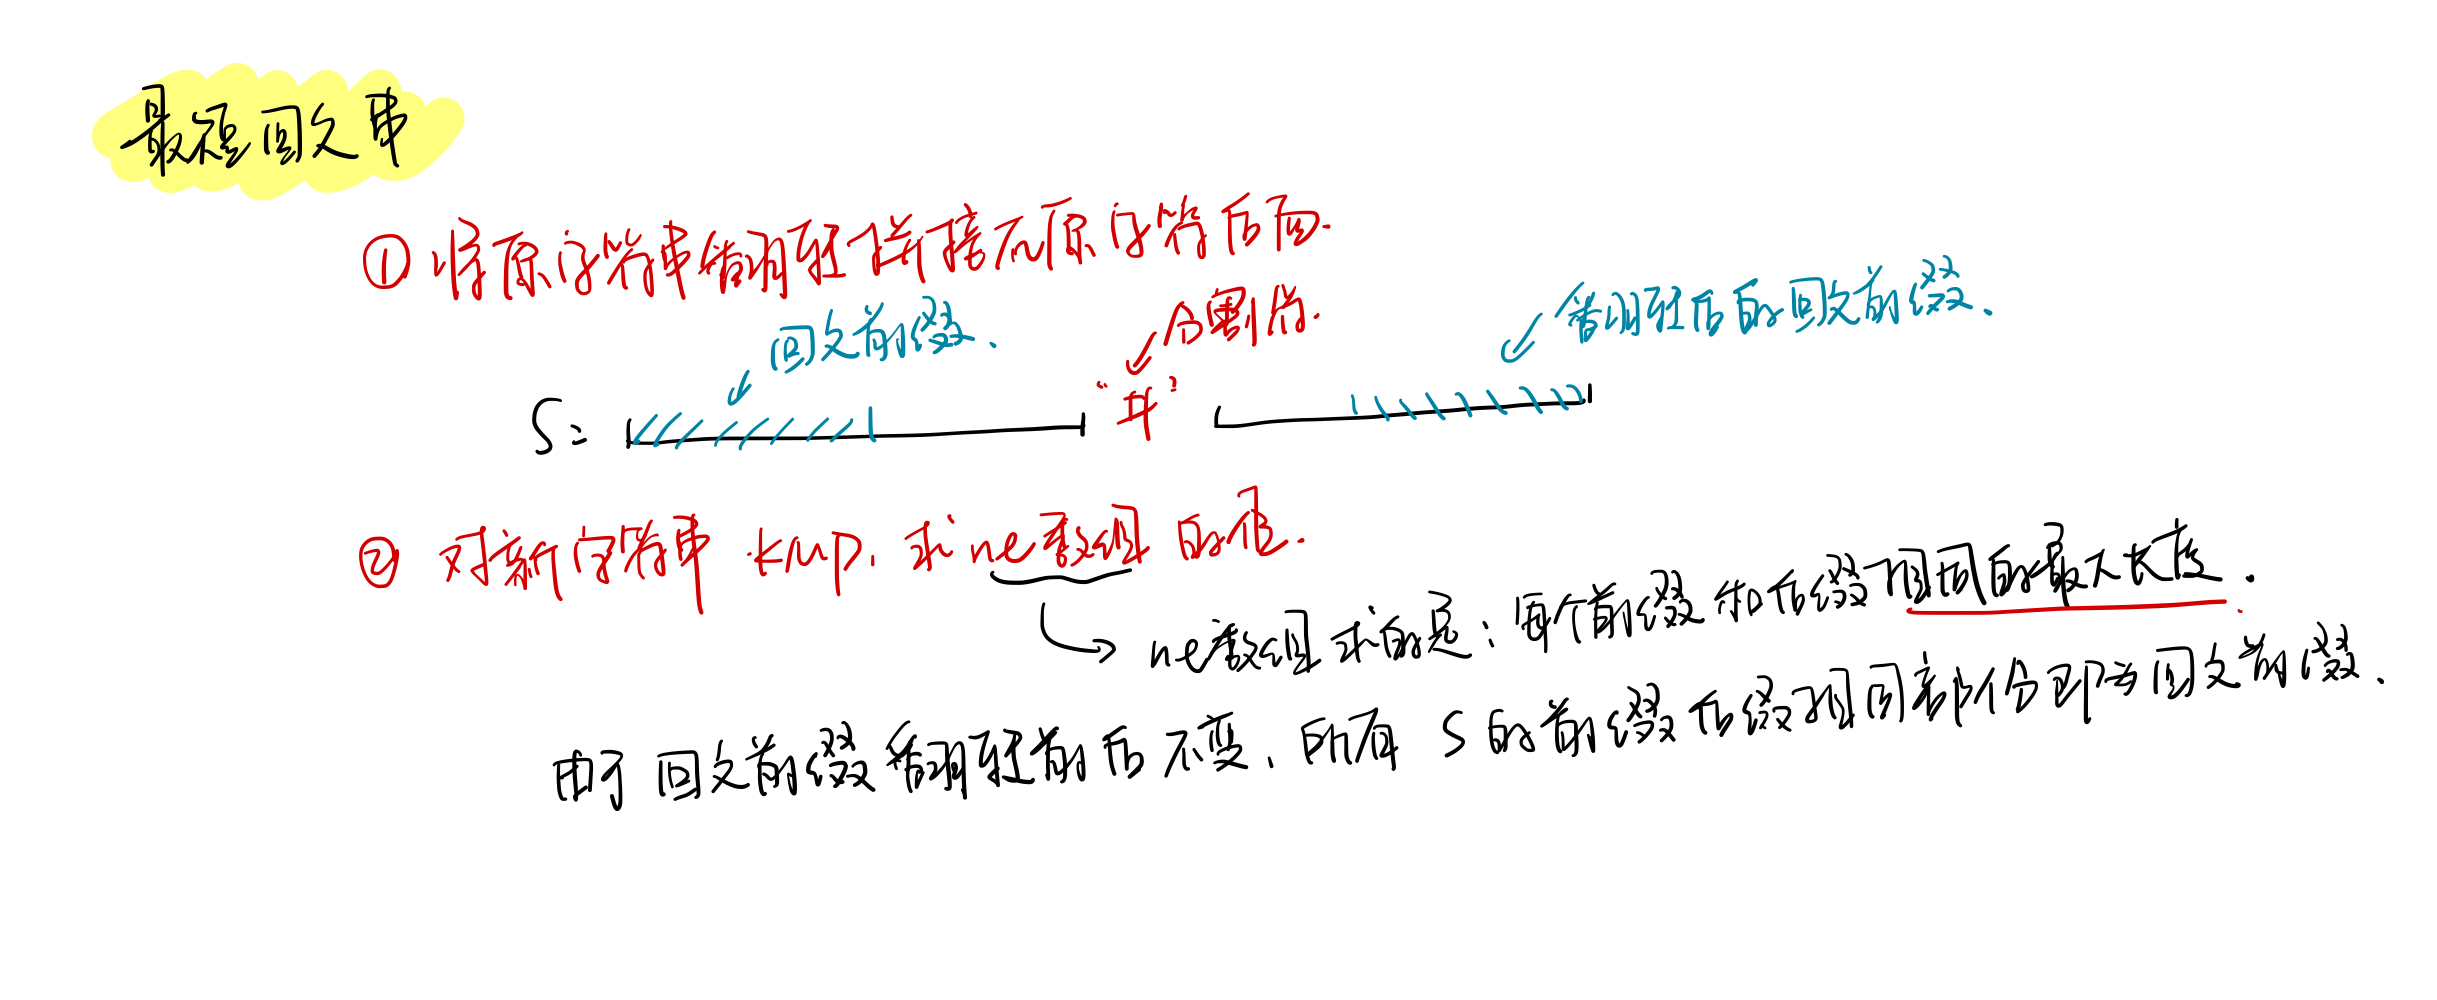 最短回文串
① 将原字符串翻转拼接在原字符后面.
回文前缀.
分割符.
翻转后的回文前缀.
S: "#"
② 对新字符串 KMP, 求ne数组的值.
ne数组求的是: 每个前缀和后缀相同的最大长度.
由于回文前缀翻转前后不变, 所有 S 的前缀后缀相同部份即为回文前缀.